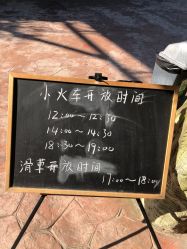 小火车开放时间
12:00~12:30
14:00~14:30
18:30~19:00
滑草开放时间
17:00~18:00